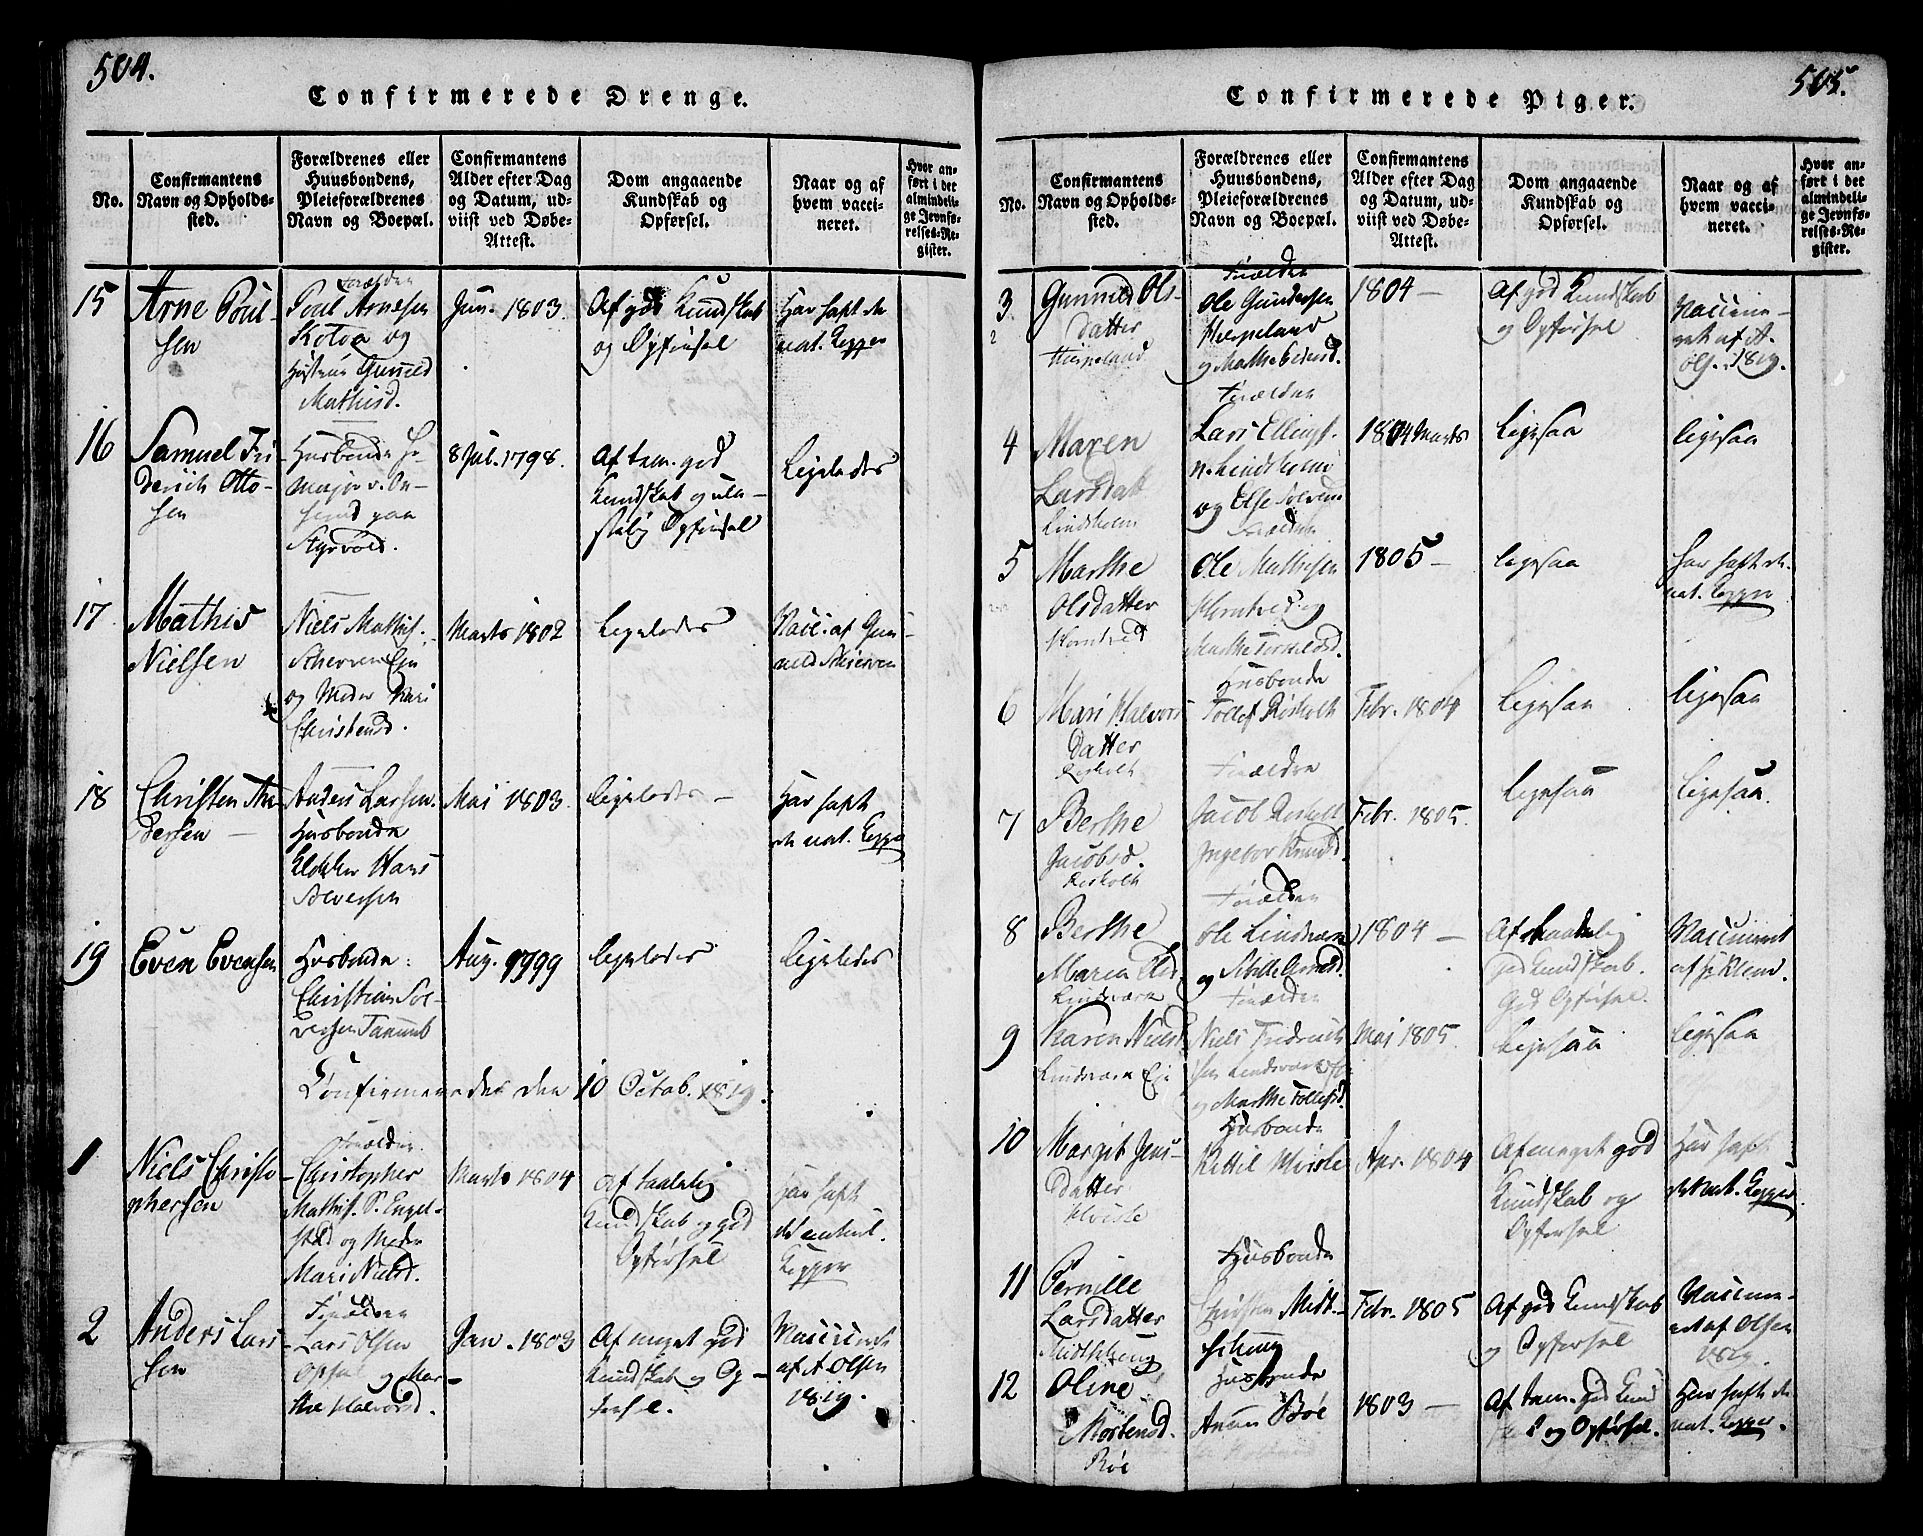 504.
Confirmerede Drenge.
No.
Confirmantens
Navn og Opholds-
sted.
Forældrenes eller
Huusbondens,
Pleieforældrenes
Navn og Boepæl.
Confirmantens
Alder efter Dag
og Datum, ud-
viist ved Døbe-
Attest.
Dom angaaende
Kundskab og
Opførsel.
Naar og af
hvem vacci-
neret.
Hvor an-
ført i det
almindeli-
ge Jevnfø-
relses-Re-
gister.
15
Arne Poul-
sen
Forældre
Poul Arnesen
og
Hustrue Gunild
Mathisd.
Jun. 1803.
Af god Kundskab
og Opførsel
Har haft de
nat. Kopper
16
Samuel Fri
derich Otto-
sen
Husbonde
Major v.
paa
Styrvold.
8 Jul. 1798.
Af tem. god
Kundskab og ula-
stelig Opførsel
Ligeledes
17
Mathis
Nielsen
Niels Mathis.
Skierven Eje
og Moder Kari
Christensd.
Marts 1802
Ligeledes
Vacc. af Gun-
nild Skierven
18
Christen An
dersen
Anders Larsen.
Husbonde
Klokker Hans
Sølversen
Mai 1803.
ligeledes
Har haft
de nat. Kopper
19
Even Evensen
Husbonde:
Christian Søl-
versen
Aug. 1799
ligeledes
ligeledes
Confirmeredes den 10 Octob. 1819.
1
Niels Christo
phersen
Forældre
Christopher
Mathis. S. Engel-
stad og Moder
Mari Nielsd.
Marts 1804
Af taalelig
Kundskab og god
Opførsel
Har haft
de naturl.
Kopper
2
Anders Lars
sen
Forældre
Lars Olsen
Opsal og Mar-
the Halvorsd.
Jan. 1803
Af meget god
Kundskab og Op-
førsel.
Vaccineret
af A Olsen
1819.
505.
Confirmerede Piger.
No.
Confirmantens
Navn og Opholds-
sted.
Forældrenes eller
Huusbondens,
Pleieforældrenes
Navn og Boepæl.
Confirmantens
Alder efter Dag
og Datum, ud-
viist ved Døbe-
Attest.
Dom angaaende
Kundskab og
Opførsel.
Naar og af
hvem vacci-
neret.
Hvor an-
ført i det
almindeli-
ge Jevnfø-
relses-Re-
gister.
3
Gunnild Ols-
datter
Forældre
Ole Gundersen
og Marthe
1804
Af god Kundskab
og Opførsel
Vaccine-
ret af A.
Ols. 1819.
4
Maren
Larsdatt
Lindsholm
Forældre
Lars Ellings.
Lindsholm
og Else
1804 Marts
Ligesaa
ligesaa
5
Marthe
Olsdatter
Forældre
Ole Mathisen
og
Marthe
1805
ligesaa
har haft de
nat. Kopper
6
Mari Halvors
datter
Røsholt
Husbonde
Tollef Røsholt
Febr. 1804
Ligesaa
ligesaa
7
Berthe
Jacobsd.
Røsholt
Forældre
Jacob Røsholt
Ingebor Knudsd.
Febr. 1805.
Ligesaa
Ligesaa.
8
Berthe
Maria Olsd.
Lindværn
Forældre
Ole Lindværn
og Sibille
1804
Af
god Kundskab.
God Opførsel.
Vaccineret
af
9
Karen Nielsd
Lindværn Eje
Forældre
Niels Fredrich
sen Lindværn
og Marthe Tollefsd.
Mai 1805.
Ligesaa
ligesaa
10
Margit Jens-
datter
Hvisle
Husbonde
Kittil Hvisle
Apr. 1804
Af meget god
Kundskab og
Opførsel
Har haft
de nat. Kopper
11
Pernille
Larsdatter
Husbonde
Christen Midt-
Febr. 1805
Af god Kundskab
og Opførsel
Vaccine-
ret af Olsen
1819.
12
Oline
Mortensd.
Bøe
Husbonde
Bøe
1803
Af tem. god Kund
og Opførsel.
Har haft de
nat. Kopper.